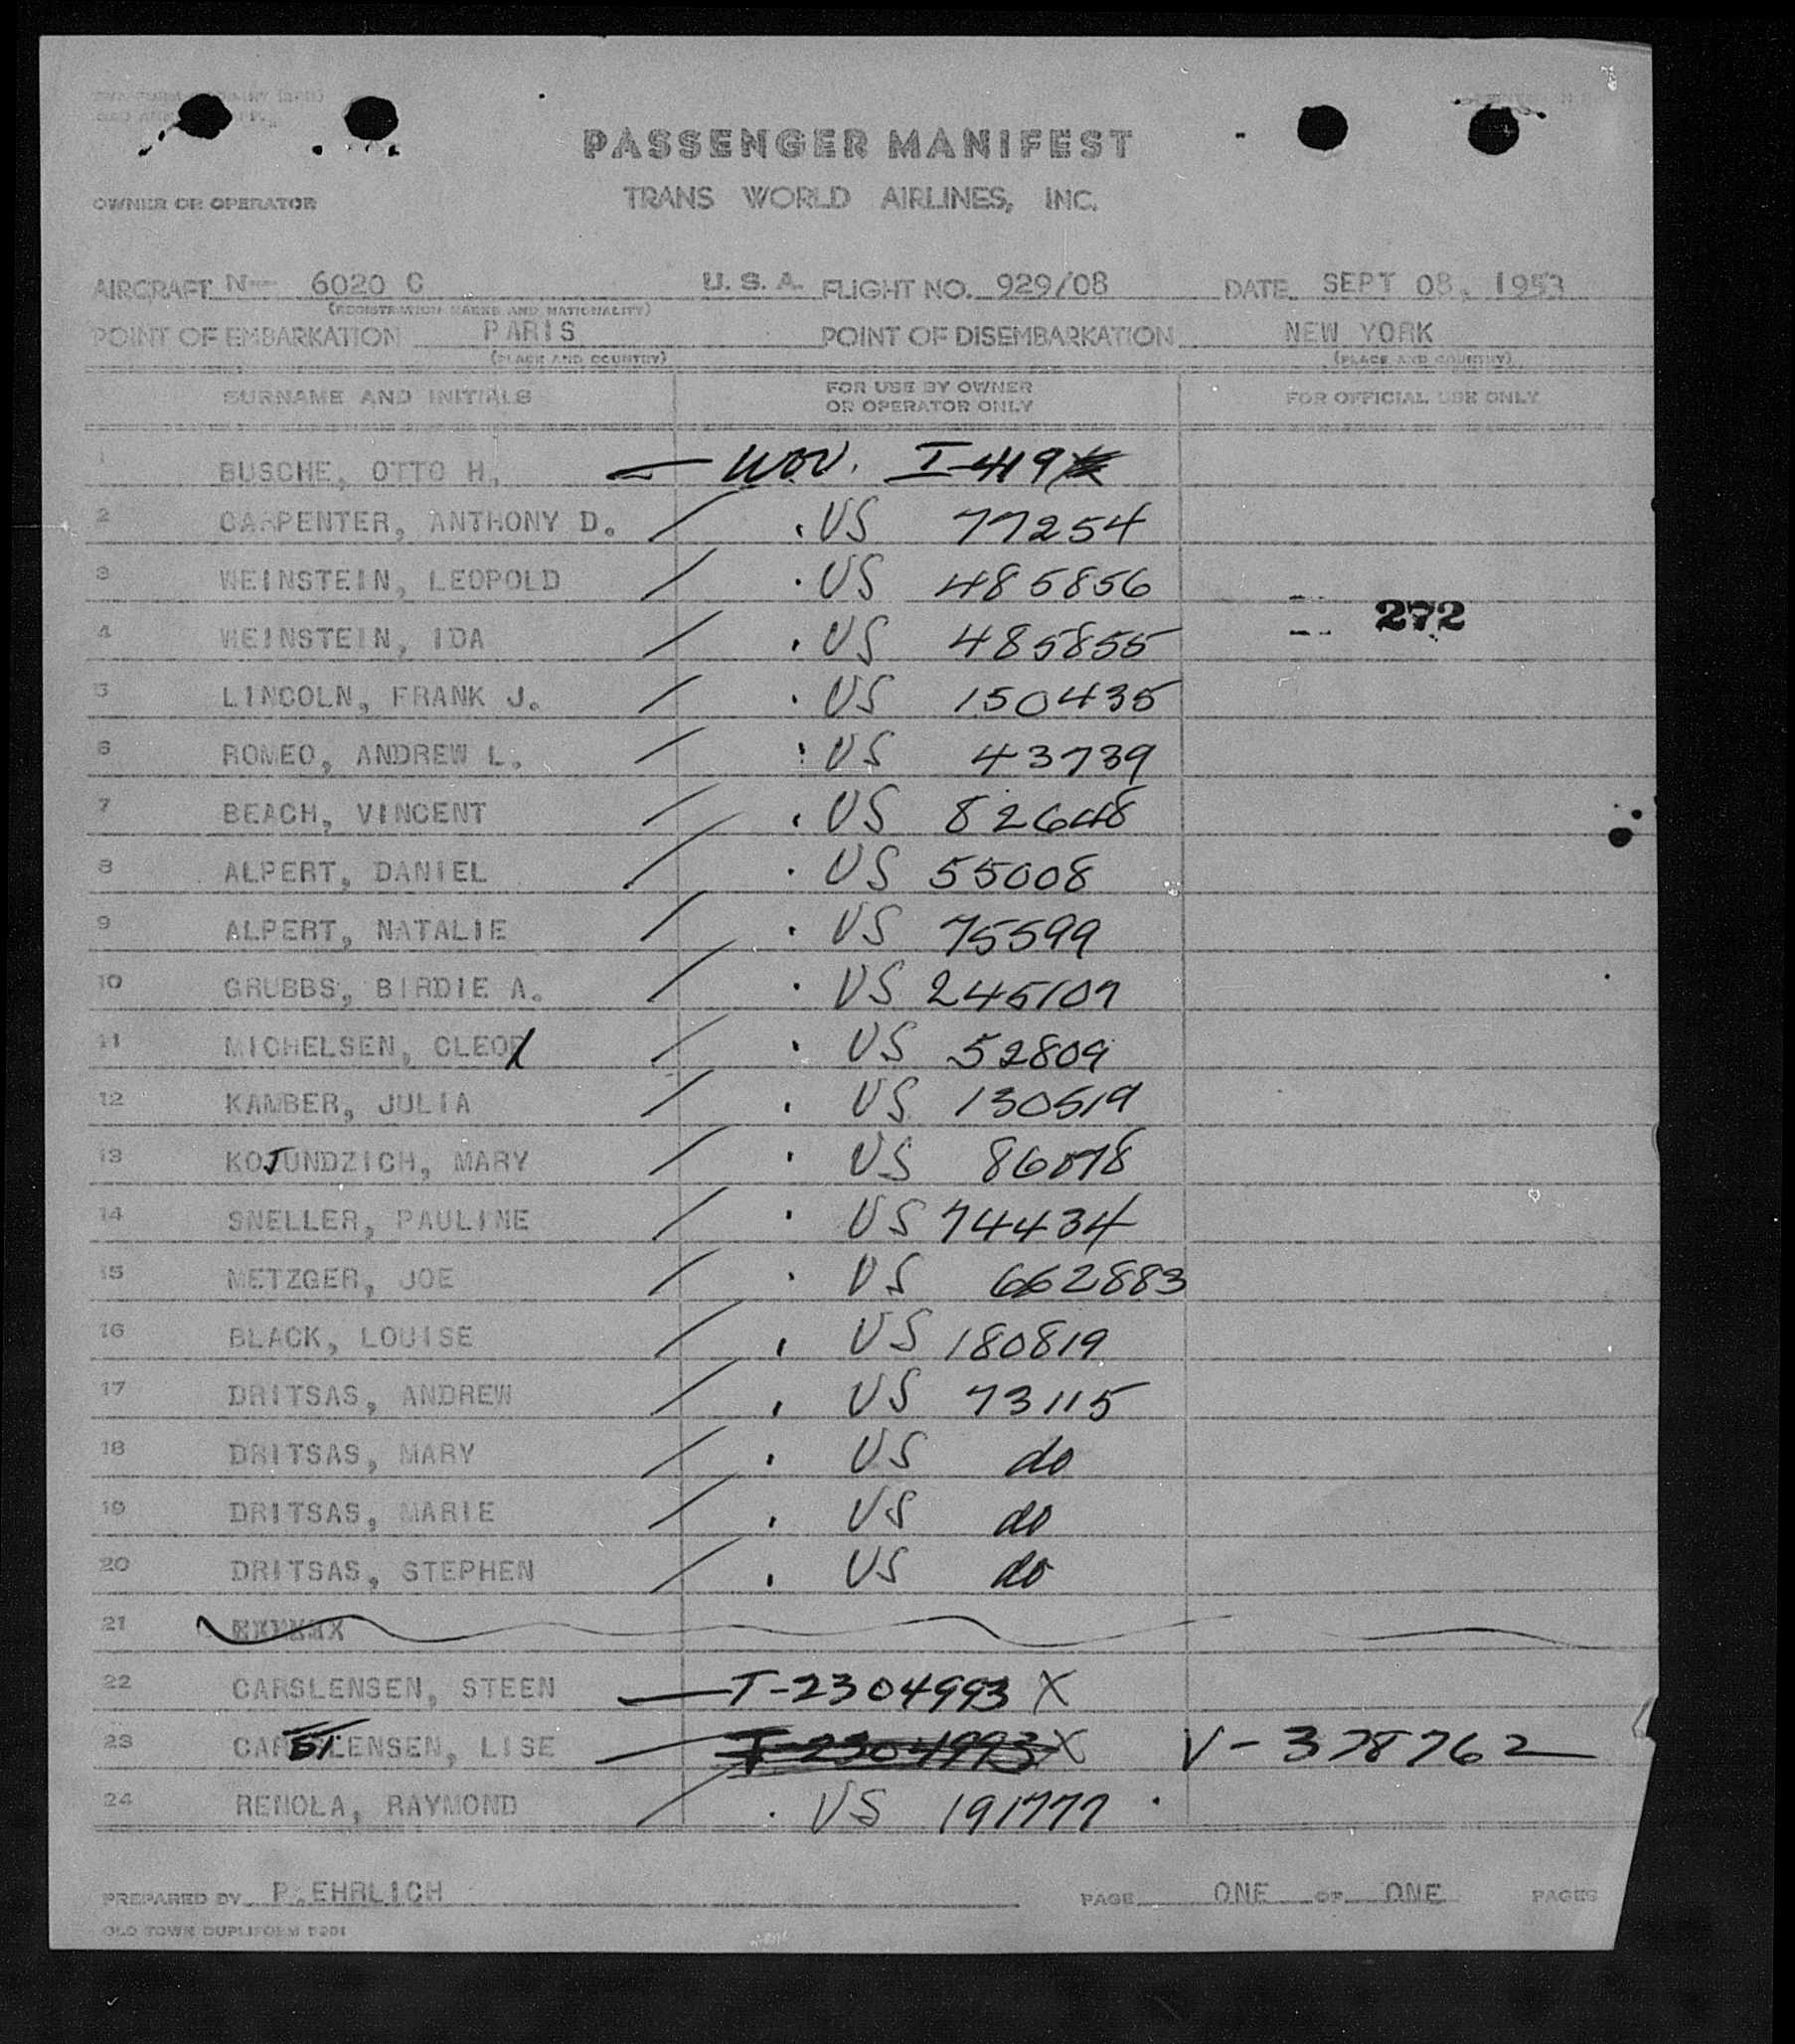 PASSENGER MANIFEST
OWNER OR OPERATOR TRANS WORLD AIRLINES, INC.
AIRCRAFT N— 6020 C U. S. A. FLIGHT NO. 929/08 DATE SEPT 08, 1953
(REGISTRATION MARKS AND NATIONALITY)
POINT OF EMBARKATION PARIS POINT OF DISEMBARKATION NEW YORK
(PLACE AND COUNTRY) (PLACE AND COUNTRY)
SURNAME AND INITIALS FOR USE BY OWNER OR OPERATOR ONLY FOR OFFICIAL USE ONLY
1 BUSCHE, OTTO H. I-419
2 CARPENTER, ANTHONY D. US 77254
3 WEINSTEIN, LEOPOLD US 485856
272
4 WEINSTEIN, IDA US 485855
5 LINCOLN, FRANK J. US 150435
6 ROMEO, ANDREW L. US 43739
7 BEACH, VINCENT US 82648
8 ALPERT, DANIEL US 55008
9 ALPERT, NATALIE US 75599
10 GRUBBS, BIRDIE A. US 245109
11 MICHELSEN, CLEO US 52809
12 KAMBER, JULIA US 130519
13 KOJUNDZICH, MARY US 86078
14 SNELLER, PAULINE US 74434
15 METZGER, JOE US 662883
16 BLACK, LOUISE US 180819
17 DRITSAS, ANDREW US 73115
18 DRITSAS, MARY US do
19 DRITSAS, MARIE US do
20 DRITSAS, STEPHEN US do
21
22 CARSLENSEN, STEEN T-2304993 X
23 CARSTENSEN, LISE T-2304993 X V-378762
24 RENOLA, RAYMOND US 191777
PREPARED BY P.EHRLICH PAGE ONE OF ONE PAGES
OLD TOWN DUPLIFORM